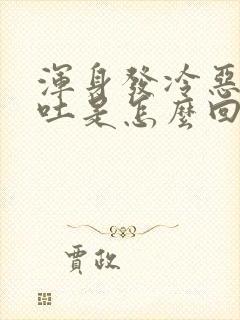 渾身發冷惡
吐是怎麼回
賈政